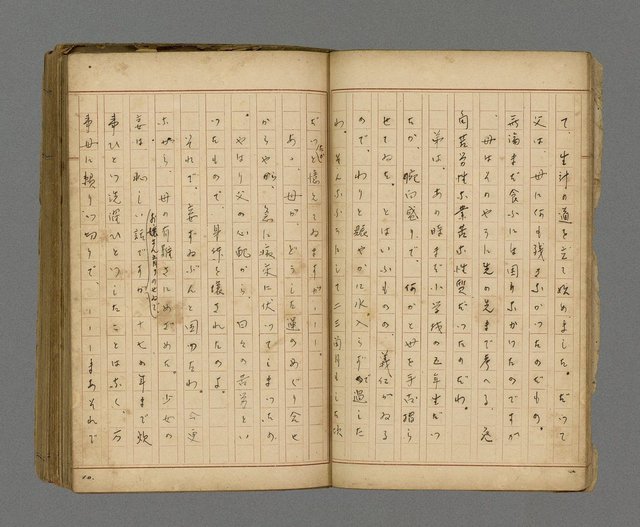 て、生計の道を立て始めました。だつて
父は、母に何も残さなかつたのだもの。
母はそのやうに先の先まで考へる、
苦労性な性質だつたのだわ。
弟は、あの時まだ小学校の五年生だつ
たか、腕白盛りで、何かと母を手古摺ら
せてゐた。とはいふものの、義仁がゐる
ので、わりと賑やかに水入らずで過した
わ。そんなふうにして二三箇月もした
だつたと憶えてゐますが……
あゝ、母が、どうした運のめぐり合せ
からやら、急に病床に伏つてしまつたの
。やはり父の心配から、日々の苦労とい
つたもので、身体を壊されたのよ。
それで、妾ずゐぶんと困つたわ。今更
ながら、母の有難さにめざめた。少女の
妾は恥しい話ですが、十七の年まで炊
お嬢さん育ちのせゐで、
事ひとつ洗濯ひとつしたことはなく、万
事母に頼り切りで、……まあそれで